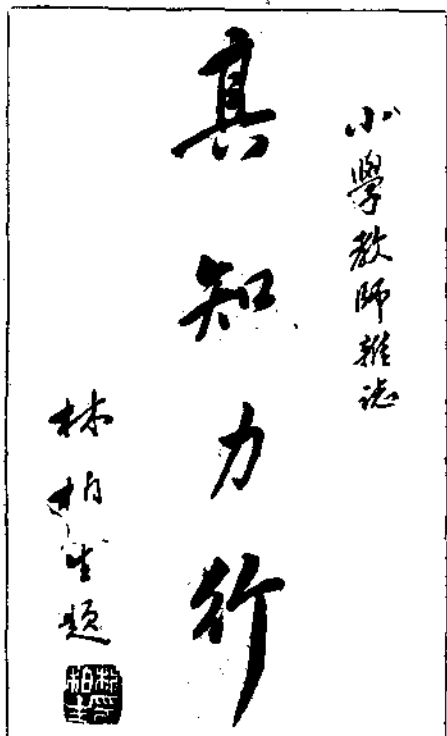 小學教師雜誌
真知力行
林柏生題
林柏生